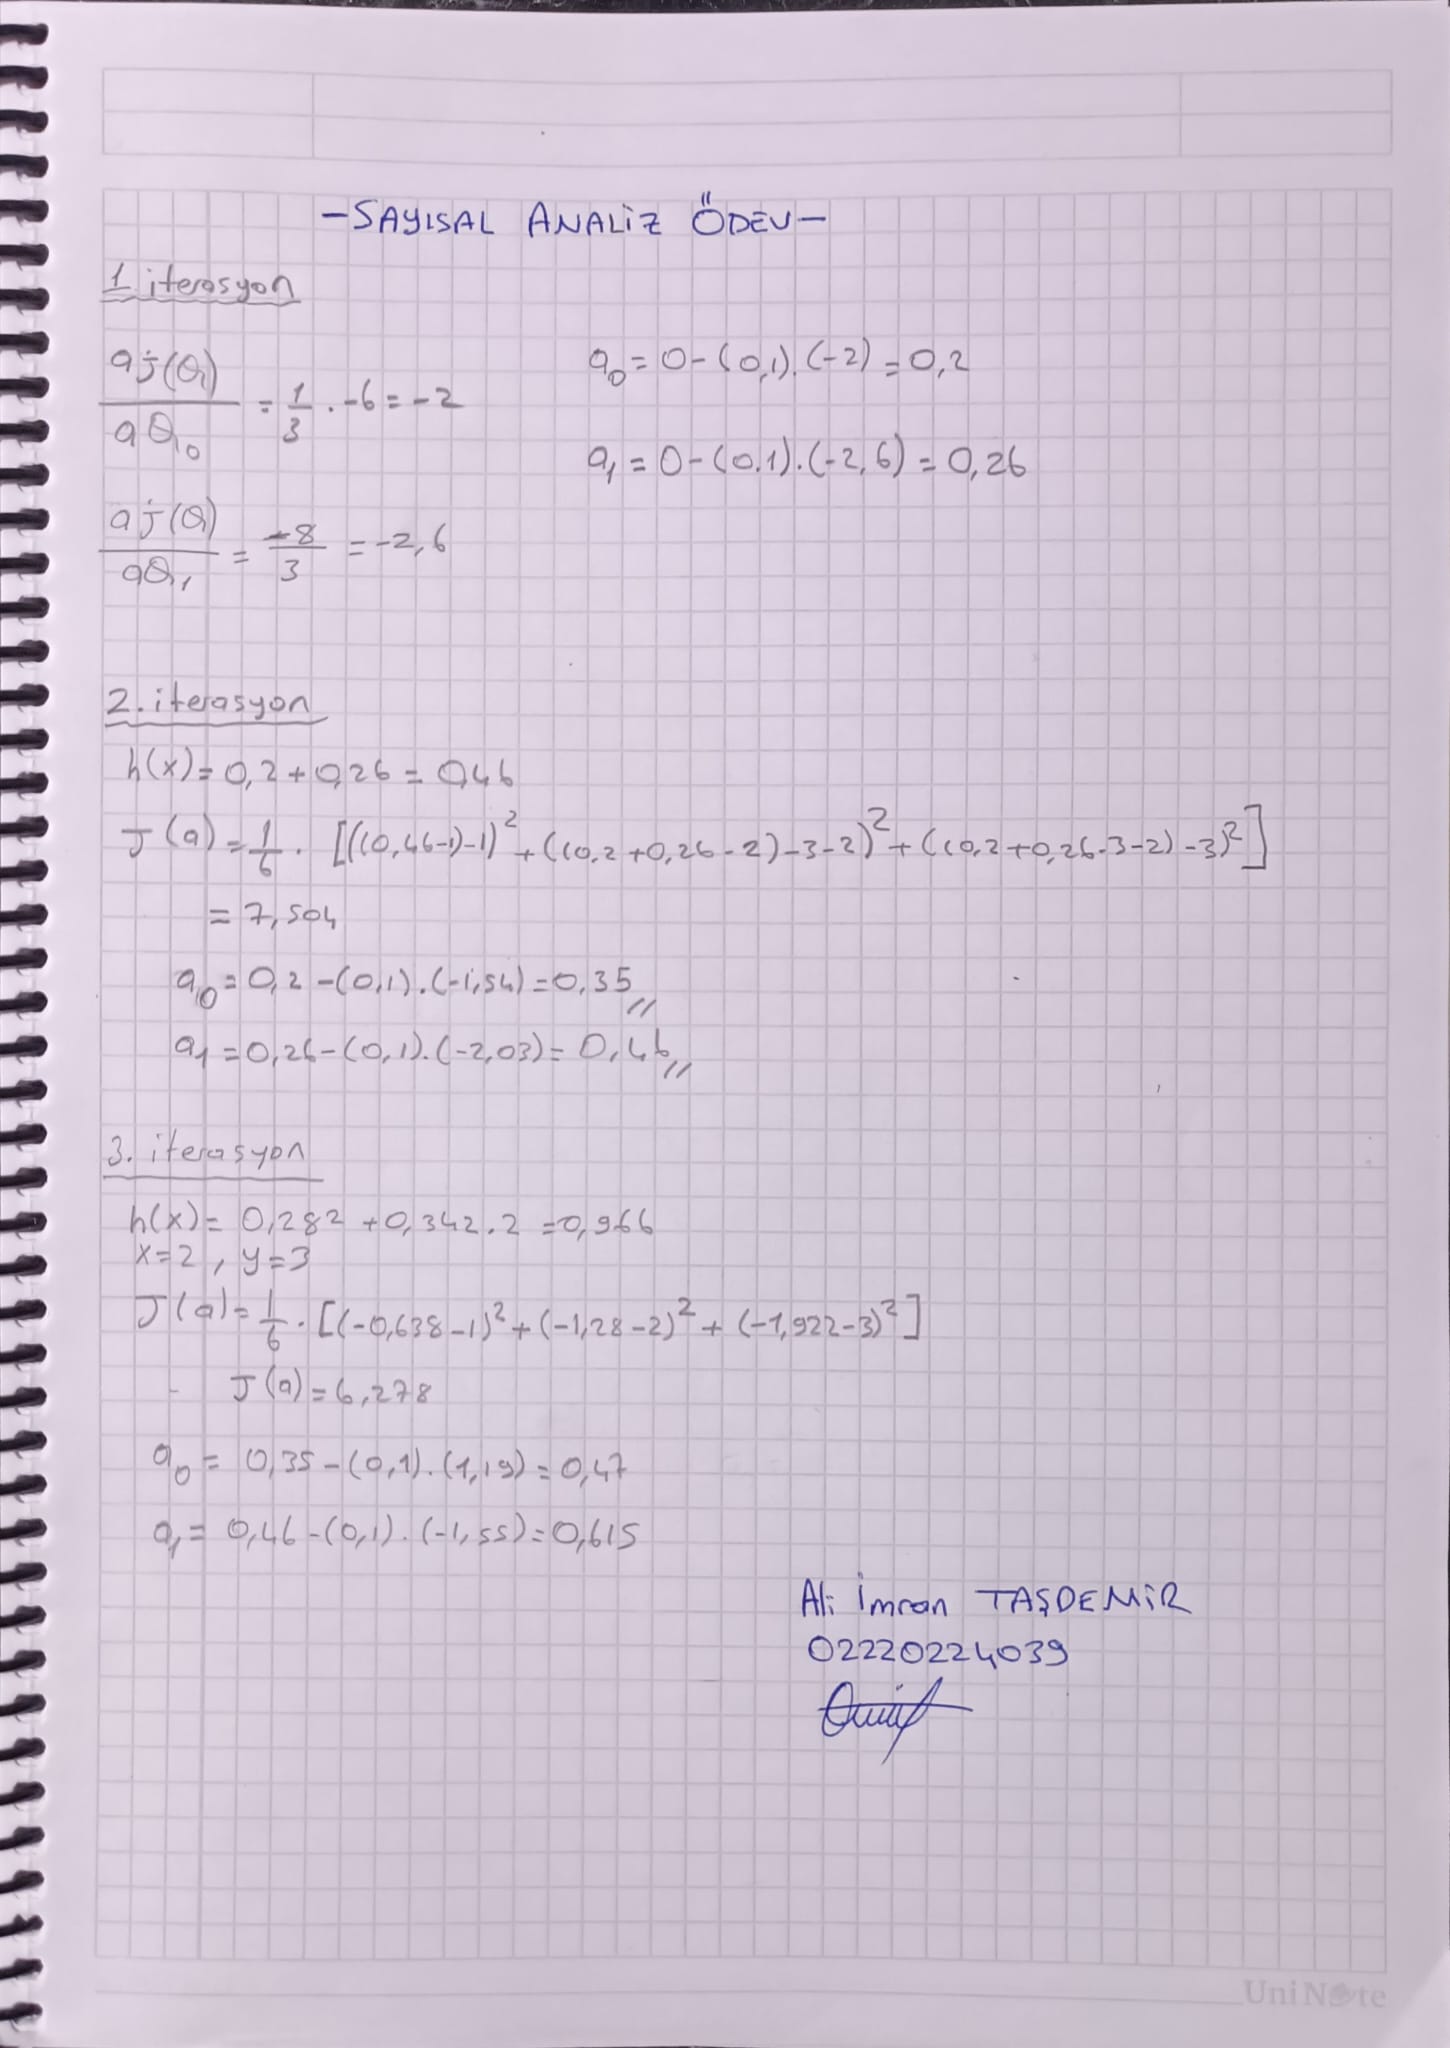 -SAYISAL ANALİZ ÖDEV-
1 iterasyon
aj(Q)/aQ₀ = 1/3 . -6 = -2
a₀ = 0-(0,1).(-2) = 0,2
a₁ = 0-(0,1).(-2,6) = 0,26
aj(Q)/aQ₁ = -8/3 = -2,6
2. iterasyon
h(x) = 0,2+0,26 = 0,46
J(a) = 1/6 . [((0,46-1)-1)² + ((0,2+0,26-2)-3-2)² + ((0,2+0,26.3-2)-3)²]
= 7,504
a₀ = 0,2-(0,1).(-1,54) = 0,35//
a₁ = 0,26-(0,1).(-2,03) = 0,46//
3. iterasyon
h(x) = 0,282+0,342.2 = 0,966
x=2, y=3
J(a) = 1/6 . [(-0,638-1)² + (-1,28-2)² + (-1,922-3)²]
J(a) = 6,278
a₀ = 0,35-(0,1).(1,19) = 0,47
a₁ = 0,46-(0,1).(-1,55) = 0,615
Ali İmran TAŞDEMİR
02220224039
UniNote